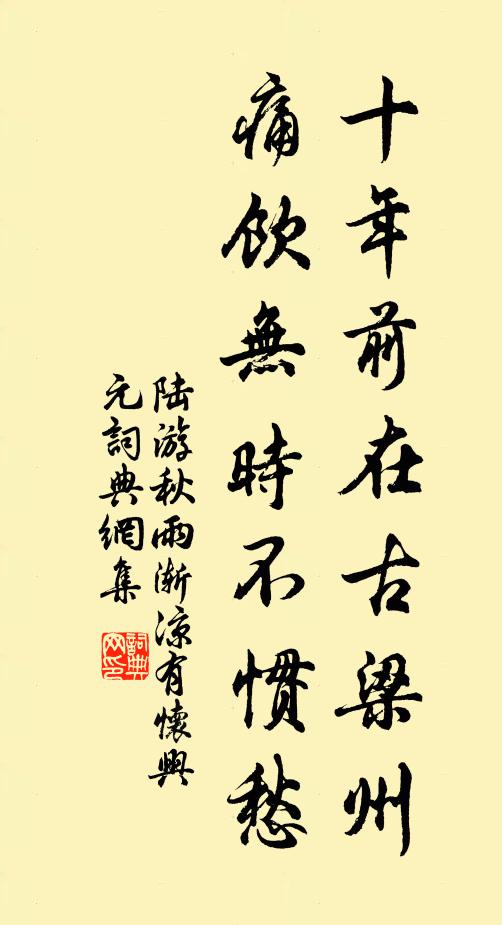 十年前在古梁州
痛飲無時不慣愁
陆游秋雨渐凉有懷興
元詞典網集
詞典
网印